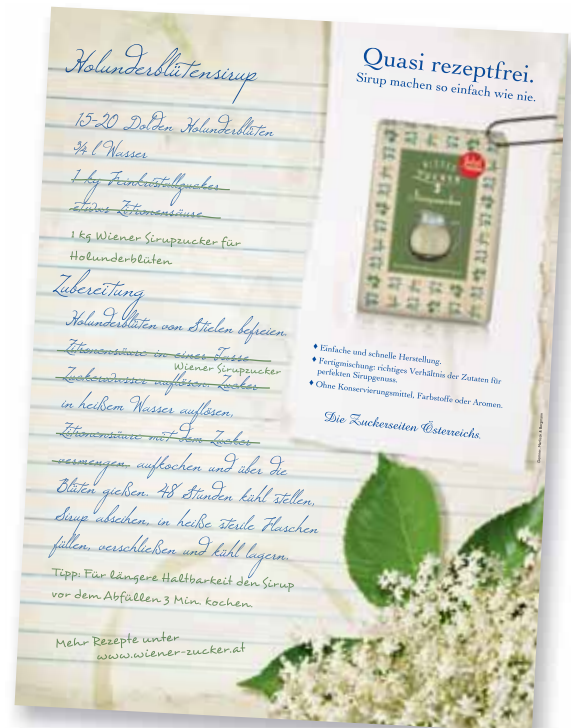 Holunderblütensirup
15-20 Dolden Holunderblüten
¾ l Wasser
1 kg Feinkristallzucker
etwas Zitronensäure
1 kg Wiener Sirupzucker für
Holunderblüten
Zubereitung
Holunderblüten von Stielen befreien.
Zitronensäure in einer Tasse
Wiener Sirupzucker
Zuckerwasser auflösen. Zucker
in heißem Wasser auflösen,
Zitronensäure mit dem Zucker
vermengen, aufkochen und über die
Blüten gießen. 48 Stunden kühl stellen,
Sirup abseihen, in heiße sterile Flaschen
füllen, verschließen und kühl lagern.
Tipp: Für längere Haltbarkeit den Sirup
vor dem Abfüllen 3 Min. kochen.
Mehr Rezepte unter
www.wiener-zucker.at
Quasi rezeptfrei.
Sirup machen so einfach wie nie.
WIENER
ZUCKER
Sirupzucker
♦ Einfache und schnelle Herstellung.
♦ Fertigmischung: richtiges Verhältnis der Zutaten für
perfekten Sirupgenuss.
♦ Ohne Konservierungsmittel, Farbstoffe oder Aromen.
Die Zuckerseiten Österreichs.